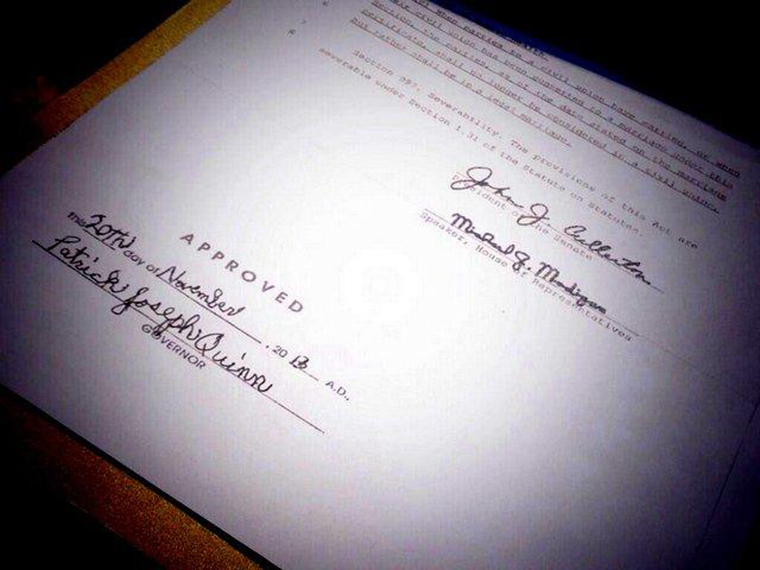 Section, the parties, as of the date stated on the marriage
certificate, shall no longer be considered in a civil union,
but rather shall be in a legal marriage.
Section 997. Severability. The provisions of this Act are
severable under Section 1.31 of the Statute on Statutes.
John J. Cullerton
President of the Senate
Michael J. Madigan
Speaker, House of Representatives
APPROVED
This 20th day of November, 2013 A.D.,
Patrick Joseph Quinn
GOVERNOR